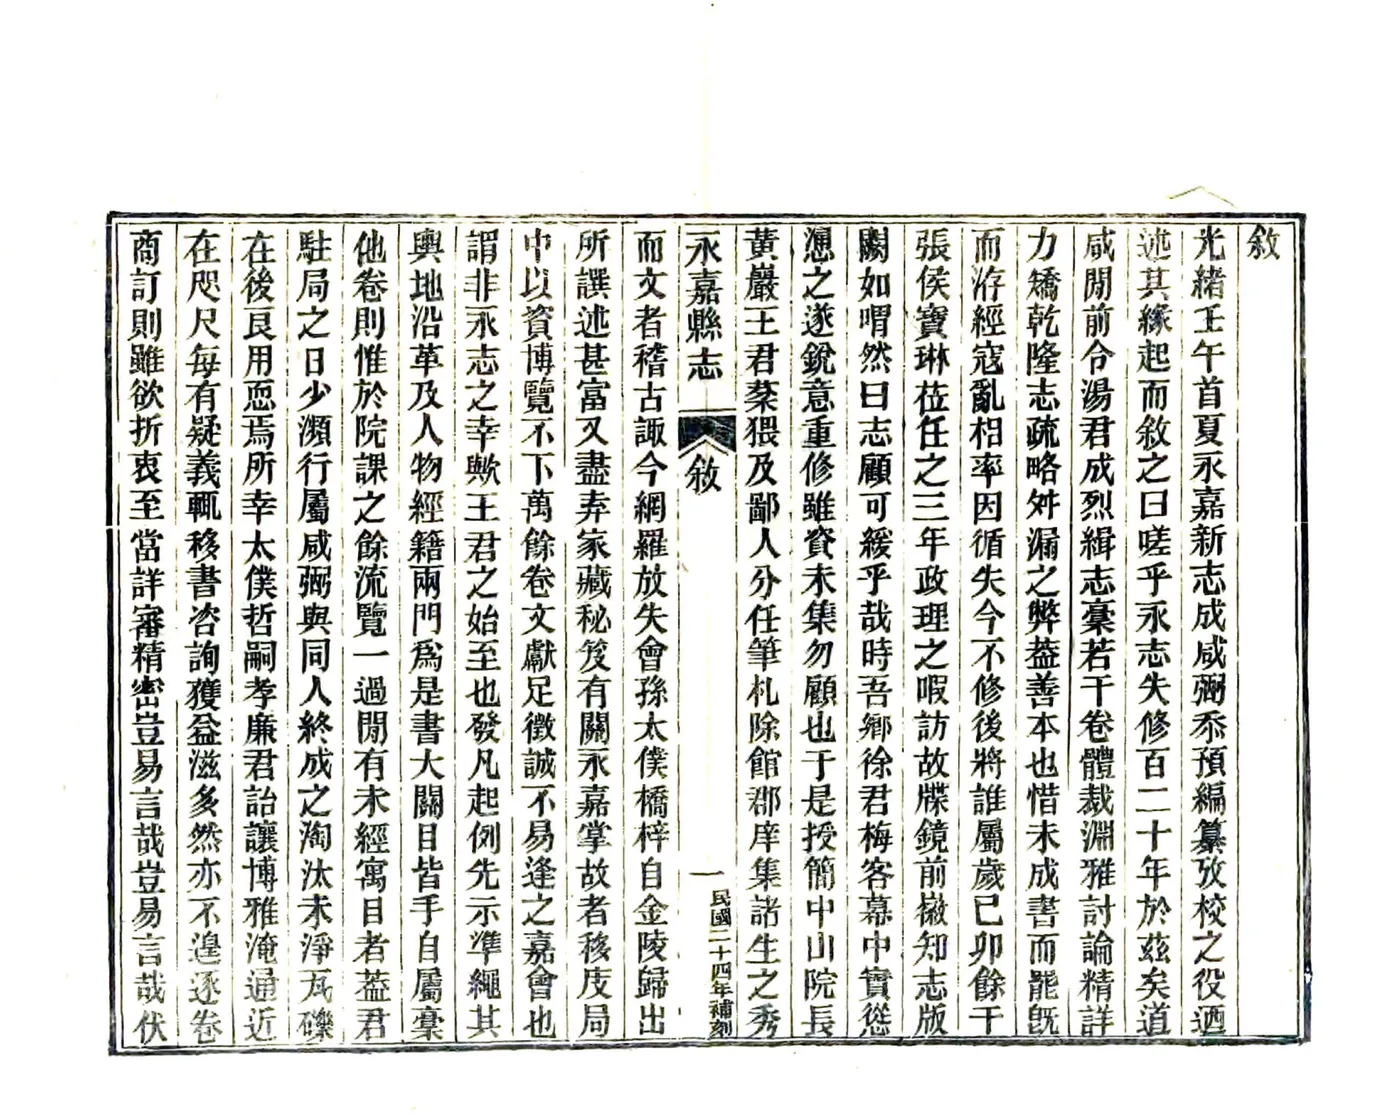 敘
光緒壬午首夏永嘉新志成咸弼忝預編纂攷校之役迺
述其緣起而敘之曰嗟乎永志失修百二十年於茲矣道
咸閒前令湯君成烈緝志稾若干卷體裁淵雅討論精詳
力矯乾隆志疏略舛漏之弊葢善本也惜未成書而罷旣
而洊經寇亂相率因循失今不修後將誰屬歲己卯餘干
張侯寶琳莅任之三年政理之暇訪故牒鏡前徽知志版
闕如喟然曰志顧可緩乎哉時吾鄉徐君梅客幕中實慫
慂之遂銳意重修雖資未集勿顧也于是授簡中山院長
黃巖王君棻猥及鄙人分任筆札除館郡庠集諸生之秀
永嘉縣志
敘
一
民國二十四年補刻
而文者稽古諏今網羅放失會孫太僕橋梓自金陵歸出
所譔述甚富又盡弆家藏秘笈有關永嘉掌故者移庋局
中以資博覽不下萬餘卷文獻足徵誠不易逢之嘉會也
謂非永志之幸歟王君之始至也發凡起例先示準繩其
輿地沿革及人物經籍兩門爲是書大關目皆手自屬稾
他卷則惟於院課之餘流覽一過閒有未經寓目者葢君
駐局之日少瀕行屬咸弼與同人終成之淘汰未淨瓦礫
在後良用恧焉所幸太僕哲嗣孝廉君詒讓博雅淹通近
在咫尺每有疑義輒移書咨詢獲益滋多然亦不遑逐卷
商訂則雖欲折衷至當詳審精密豈易言哉豈易言哉伏